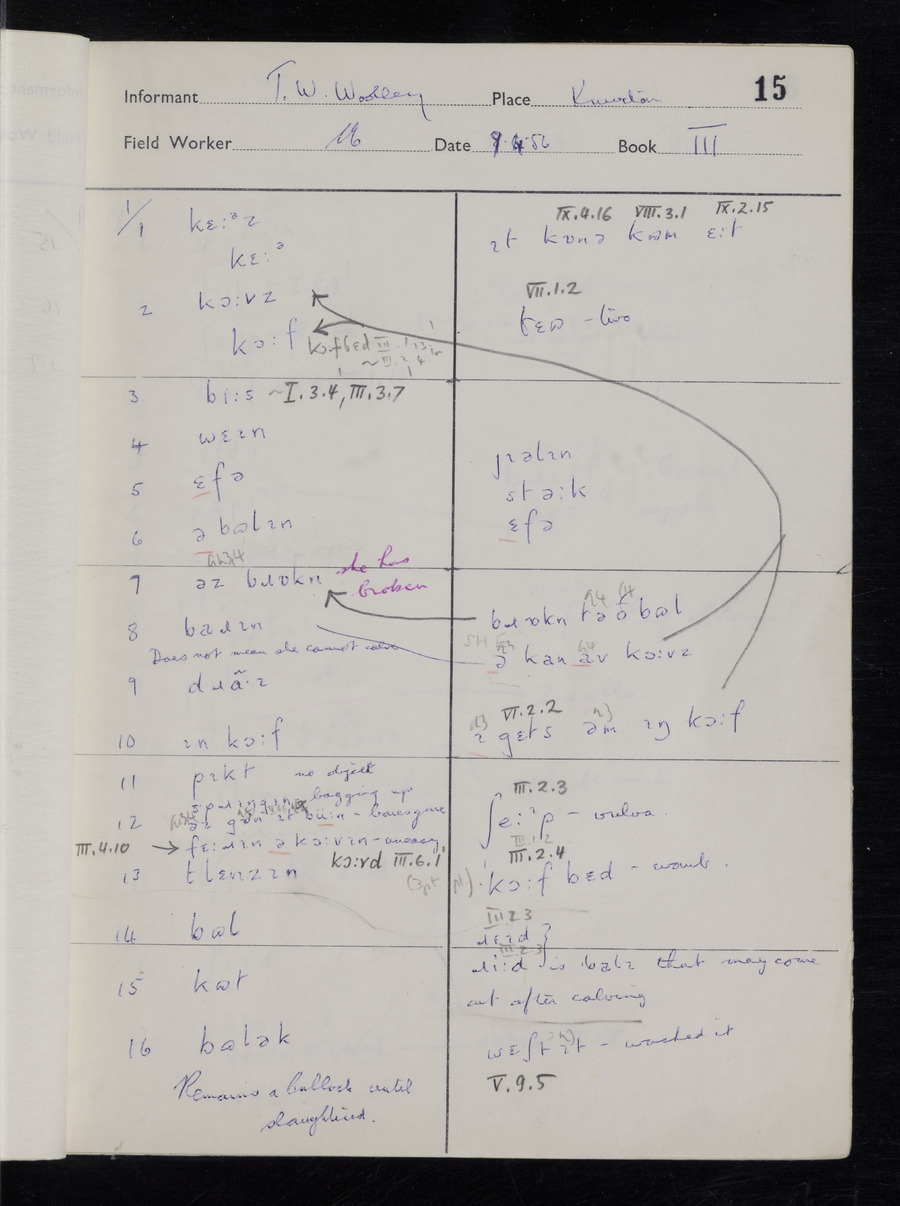 Informant T. W. Woolley Place Kniveton 15
Field Worker Date 9.4.56 Book III
1/1 kɛ:ᵊz
kɛ:ᵊ
2 kɔ:vz
kɔ:f
3 bi:s ~I.3.4, III.3.7
4 wɛɪn
5 ɛfə
6 ə bɷlɪn
7 əz bɹɒkn she has broken
8 baɹɪn
Does not mean she cannot calve
9 dɹãˑɪ
10 ɪn kɔ:f
11 pɪkt no object
spɹɪŋgɪn bagging up
12
III.4.10 → fɛ:ɹɪn ə kɔ:vɪn - uneasy
kɔ:vd III.6.1
13 tlɛnzɪn
14 bɷl
15 kɷt
16 bɷlək
Remains a bullock until
slaughtered.
IX.4.16 VIII.3.1 IX.2.15
ɪt kɒnə kɷm ɛ:t
VII.1.2
tɛɷ - two
stə:k
ɛfə
bɹɒkn tə ə bɷl
ə kan av kɔ:vz
VI.2.2
ɪ gɛts əm ɪŋ kɔ:f
III.2.3
ʃe:ᵊp - vulva.
III.1.2
III.2.4
kɔ:f bɛd - womb.
III.2.3
ɹɛɪd }
III.2.3
ɹi:d is balɪ that may come
out after calving
wɛʃt ɪt - washed it
V.9.5